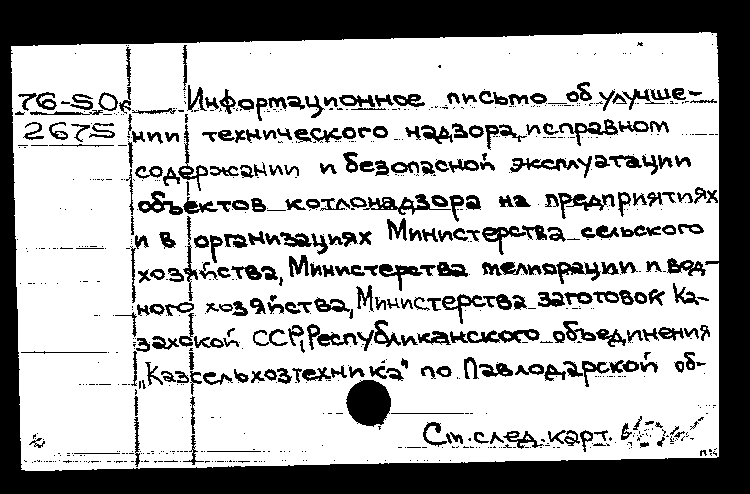 76-50к Информационное письмо об улучше-
2675 нии технического надзора, исправном
содержании и безопасной эксплуатации
объектов котлонадзора на предприятиях
и в организациях Министерства сельского
хозяйства, Министерства мелиорации и вод-
ного хозяйства, Министерства заготовок Ка-
захской ССР, Республиканского объединения
„Казсельхозтехника" по Павлодарской об-
См. след. карт.